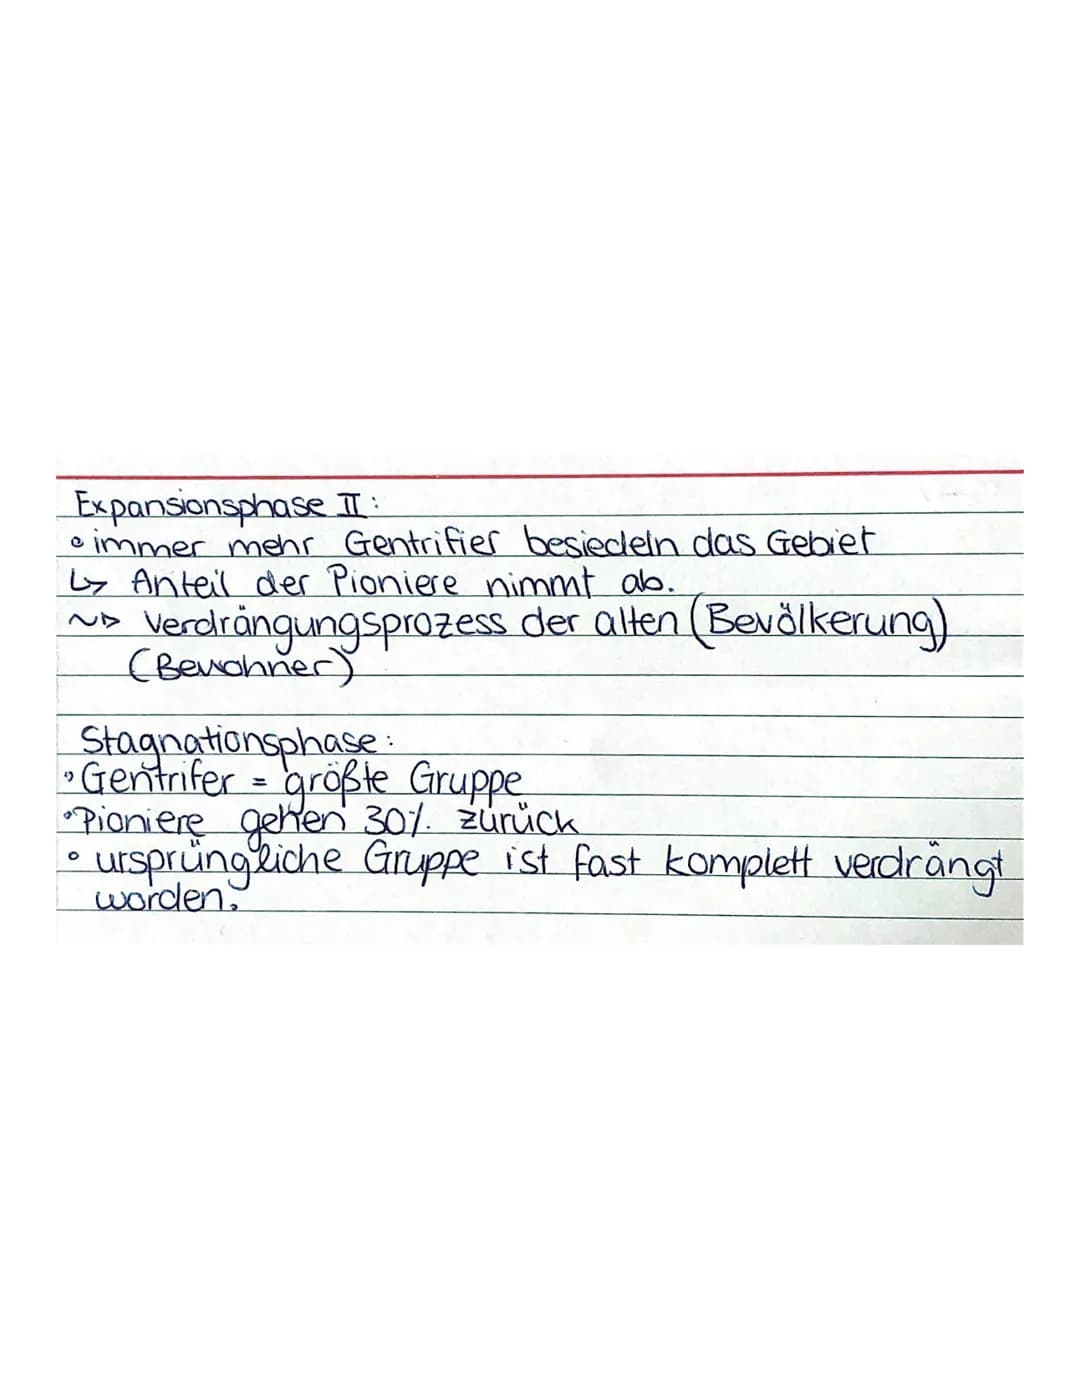 Expansionsphase II:
• immer mehr Gentrifier besiedeln das Gebiet
↳ Anteil der Pioniere nimmt ab.
~▷ Verdrängungsprozess der alten (Bevölkerung)
(Bewohner)
Stagnationsphase:
• Gentrifer = größte Gruppe
• Pioniere gehen 30% zurück
• ursprüngliche Gruppe ist fast komplett verdrängt
worden.